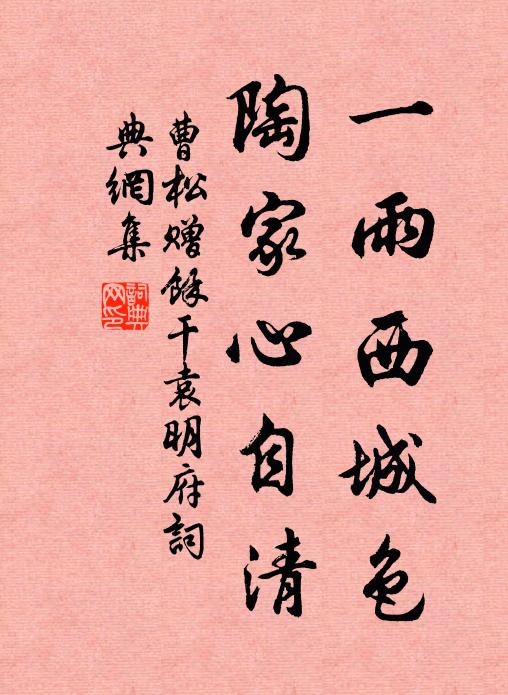 一雨西城色
陶家心自清
曹松赠餘干袁明府詞
典網集
詞典
网印